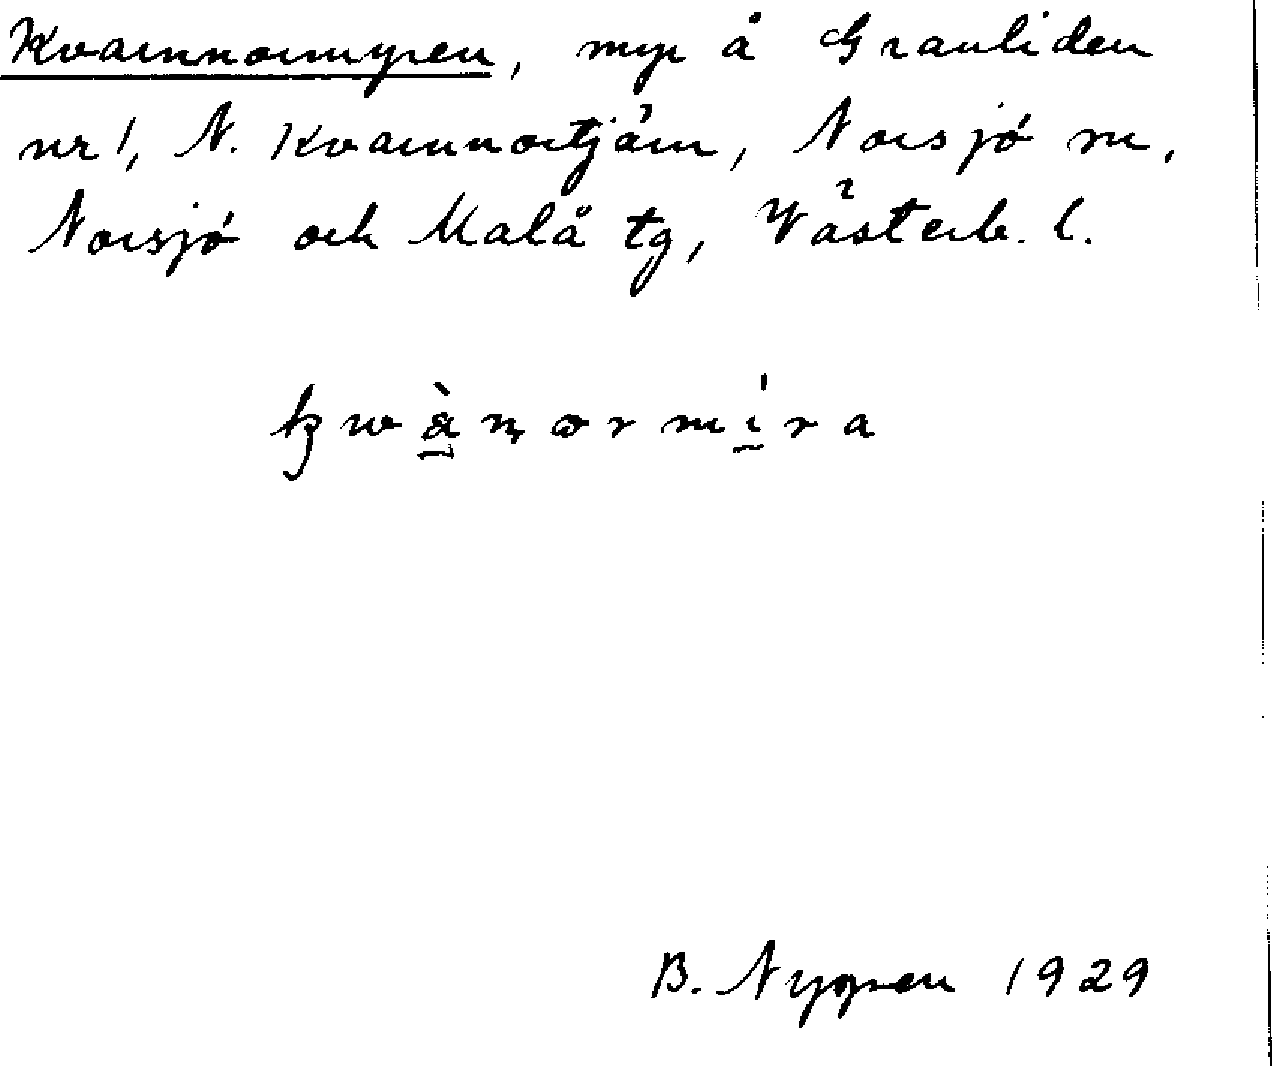 Kvarnnormyren, myr å Granliden
nr 1, N. Kvarnnortjärn, Norsjö sn,
Norsjö och Malå tg, Västerb. l.
kwànormíra
B. Nygren 1929